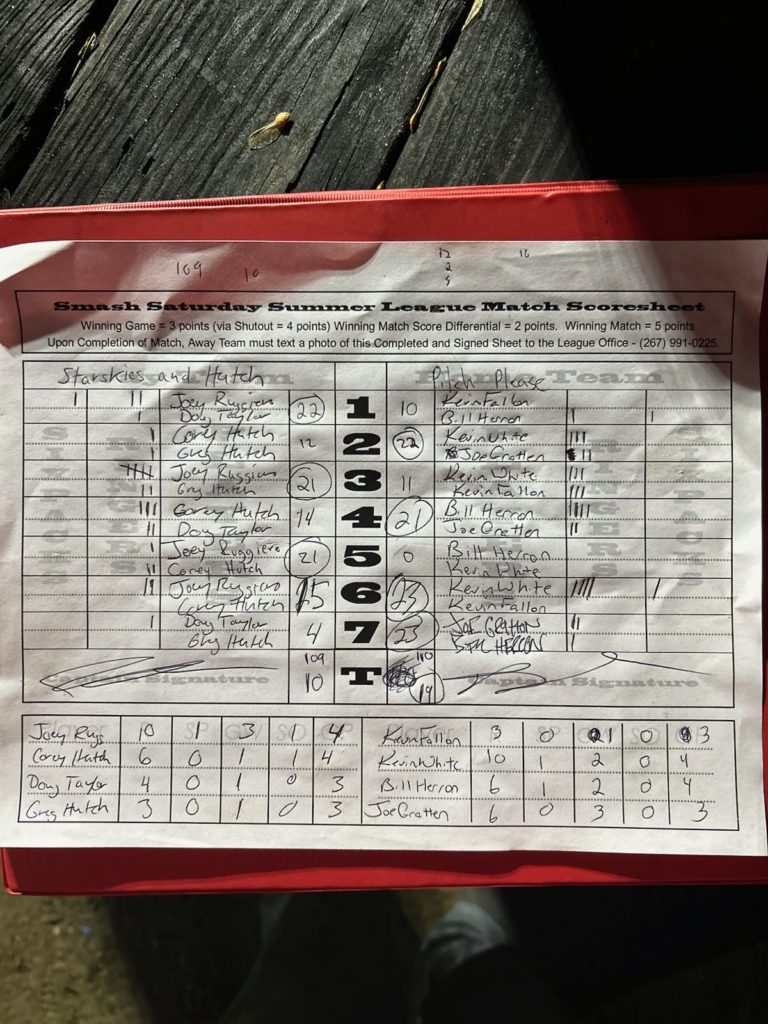 109 10 12 10
2
5
Smash Saturday Summer League Match Scoresheet
Winning Game = 3 points (via Shutout = 4 points) Winning Match Score Differential = 2 points. Winning Match = 5 points
Upon Completion of Match, Away Team must text a photo of this Completed and Signed Sheet to the League Office - (267) 991-0225.
Starskies and Hutch Pitch Please Team
Joey Ruggiero 22 1 10 Kevin Fallon
Doug Taylor Bill Herron
Corey Hutch 12 2 22 Kevin White
Greg Hutch Joe Gratten
Joey Ruggiero 21 3 11 Kevin White
Greg Hutch Kevin Fallon
Corey Hutch 14 4 21 Bill Herron
Doug Taylor Joe Gratten
Joey Ruggiero 21 5 0 Bill Herron
Corey Hutch Kevin White
Joey Ruggiero 15 6 23 Kevin White
Corey Hutch Kevin Fallon
Doug Taylor 4 7 23 JOE GRATTON
Greg Hutch BILL HERRON
Captain Signature 109 10 T 110 19 Captain Signature
Joey Rugg 10 1 3 1 4 Kevin Fallon 3 0 1 0 3
Corey Hutch 6 0 1 1 4 Kevin White 10 1 2 0 4
Doug Taylor 4 0 1 0 3 Bill Herron 6 1 2 0 4
Greg Hutch 3 0 1 0 3 Joe Gratten 6 0 3 0 3